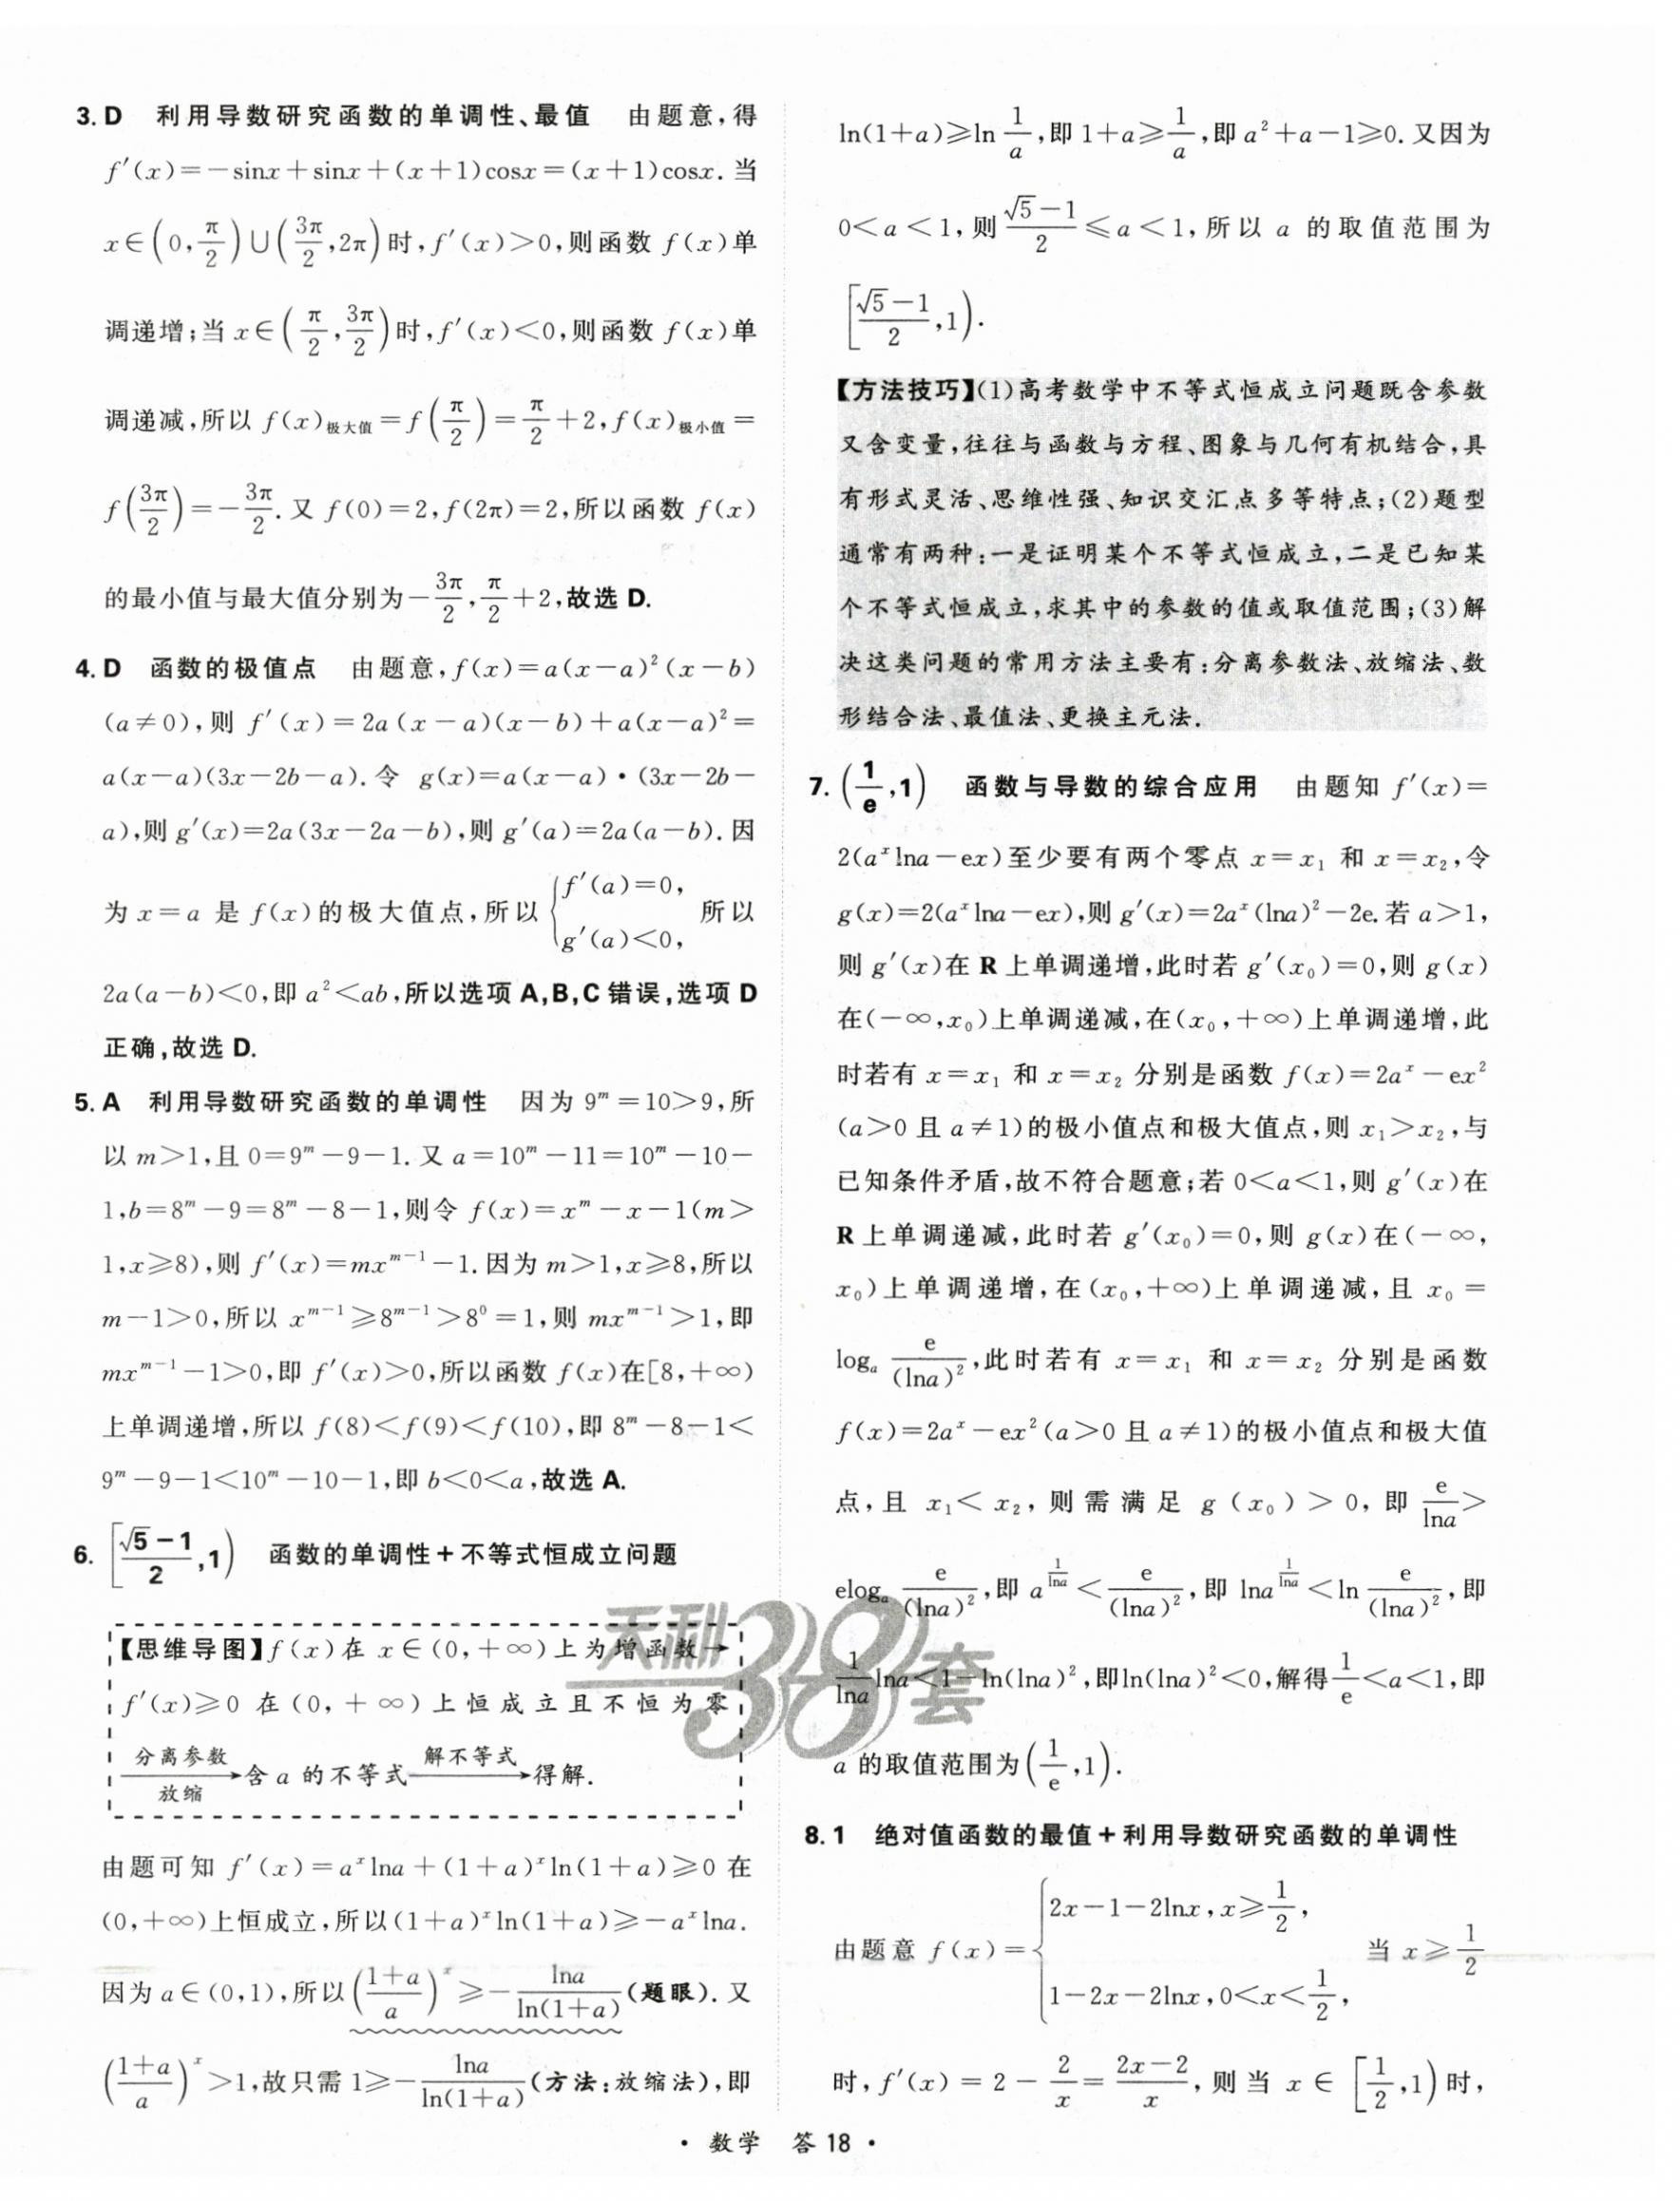 3. D 利用导数研究函数的单调性、最值 由题意,得
f′(x)=−sinx+sinx+(x+1)cosx=(x+1)cosx. 当
x∈(0,π/2)∪(3π/2,2π)时,f′(x)>0,则函数 f(x)单
调递增;当 x∈(π/2,3π/2)时,f′(x)<0,则函数 f(x)单
调递减,所以 f(x)极大值=f(π/2)=π/2+2,f(x)极小值=
f(3π/2)=−3π/2. 又 f(0)=2,f(2π)=2,所以函数 f(x)
的最小值与最大值分别为−3π/2,π/2+2,故选 D.
4. D 函数的极值点 由题意,f(x)=a(x−a)²(x−b)
(a≠0),则 f′(x)=2a(x−a)(x−b)+a(x−a)²=
a(x−a)(3x−2b−a). 令 g(x)=a(x−a)·(3x−2b−
a),则 g′(x)=2a(3x−2a−b),则 g′(a)=2a(a−b). 因
为 x=a 是 f(x)的极大值点,所以{f′(a)=0, g′(a)<0, 所以
2a(a−b)<0,即 a²<ab,所以选项 A,B,C 错误,选项 D
正确,故选 D.
5. A 利用导数研究函数的单调性 因为 9^m=10>9,所
以 m>1,且 0=9^m−9−1. 又 a=10^m−11=10^m−10−
1,b=8^m−9=8^m−8−1,则令 f(x)=x^m−x−1(m>
1,x⩾8),则 f′(x)=mx^(m−1)−1. 因为 m>1,x⩾8,所以
m−1>0,所以 x^(m−1)⩾8^(m−1)>8⁰=1,则 mx^(m−1)>1,即
mx^(m−1)−1>0,即 f′(x)>0,所以函数 f(x)在[8,+∞)
上单调递增,所以 f(8)<f(9)<f(10),即 8^m−8−1<
9^m−9−1<10^m−10−1,即 b<0<a,故选 A.
6. [(√5−1)/2,1) 函数的单调性+不等式恒成立问题
【思维导图】f(x)在 x∈(0,+∞)上为增函数→
f′(x)⩾0 在(0,+∞)上恒成立且不恒为零
分离参数 放缩→含 a 的不等式 解不等式→得解.
由题可知 f′(x)=a^x lna+(1+a)^x ln(1+a)⩾0 在
(0,+∞)上恒成立,所以(1+a)^x ln(1+a)⩾−a^x lna.
因为 a∈(0,1),所以((1+a)/a)^x⩾−lna/ln(1+a)(题眼). 又
((1+a)/a)^x>1,故只需 1⩾−lna/ln(1+a)(方法:放缩法),即
ln(1+a)⩾ln 1/a,即 1+a⩾1/a,即 a²+a−1⩾0. 又因为
0<a<1,则(√5−1)/2⩽a<1,所以 a 的取值范围为
[(√5−1)/2,1).
【方法技巧】(1)高考数学中不等式恒成立问题既含参数
又含变量,往往与函数与方程、图象与几何有机结合,具
有形式灵活、思维性强、知识交汇点多等特点;(2)题型
通常有两种:一是证明某个不等式恒成立,二是已知某
个不等式恒成立,求其中的参数的值或取值范围;(3)解
决这类问题的常用方法主要有:分离参数法、放缩法、数
形结合法、最值法、更换主元法.
7. (1/e,1) 函数与导数的综合应用 由题知 f′(x)=
2(a^x lna−ex)至少要有两个零点 x=x₁ 和 x=x₂,令
g(x)=2(a^x lna−ex),则 g′(x)=2a^x(lna)²−2e. 若 a>1,
则 g′(x)在 R 上单调递增,此时若 g′(x₀)=0,则 g(x)
在(−∞,x₀)上单调递减,在(x₀,+∞)上单调递增,此
时若有 x=x₁ 和 x=x₂ 分别是函数 f(x)=2a^x−ex²
(a>0 且 a≠1)的极小值点和极大值点,则 x₁>x₂,与
已知条件矛盾,故不符合题意;若 0<a<1,则 g′(x)在
R 上单调递减,此时若 g′(x₀)=0,则 g(x)在(−∞,
x₀)上单调递增,在(x₀,+∞)上单调递减,且 x₀=
logₐ e/(lna)²,此时若有 x=x₁ 和 x=x₂ 分别是函数
f(x)=2a^x−ex²(a>0 且 a≠1)的极小值点和极大值
点,且 x₁<x₂,则需满足 g(x₀)>0,即 e/lna>
elogₐ e/(lna)²,即 a^(1/lna)<e/(lna)²,即 lna^(1/lna)<ln e/(lna)²,即
1/lna lna<1−ln(lna)²,即ln(lna)²<0,解得1/e<a<1,即
a 的取值范围为(1/e,1).
8. 1 绝对值函数的最值+利用导数研究函数的单调性
由题意 f(x)={2x−1−2lnx,x⩾1/2, 1−2x−2lnx,0<x<1/2, 当 x⩾1/2
时,f′(x)=2−2/x=(2x−2)/x,则当 x∈[1/2,1)时,
天利38套
· 数学 答 18 ·